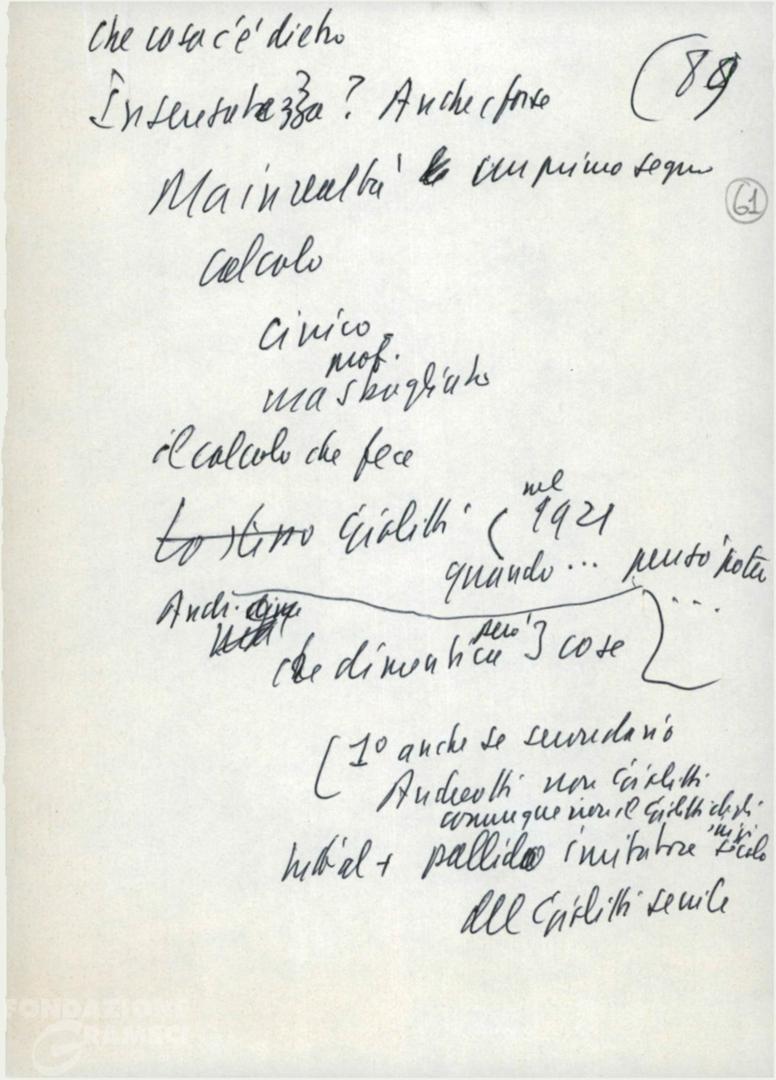 che cosa c'è dietro
(89
Insensatezza? Anche forse
Ma in realtà un primo segno
61
calcolo
cinico
mof.
ma sbagliato
il calcolo che fece
lo stesso Giolitti (nel 1921
quando... pensò poter
...
Andr.
che dimentica però 3 cose
[1º anche se secondario
Andreotti non Giolitti
comunque non il Giolitti degli inizi
secolo
tutt'al + pallido imitatore
del Giolitti senile
FONDAZIONE
GRAMSCI